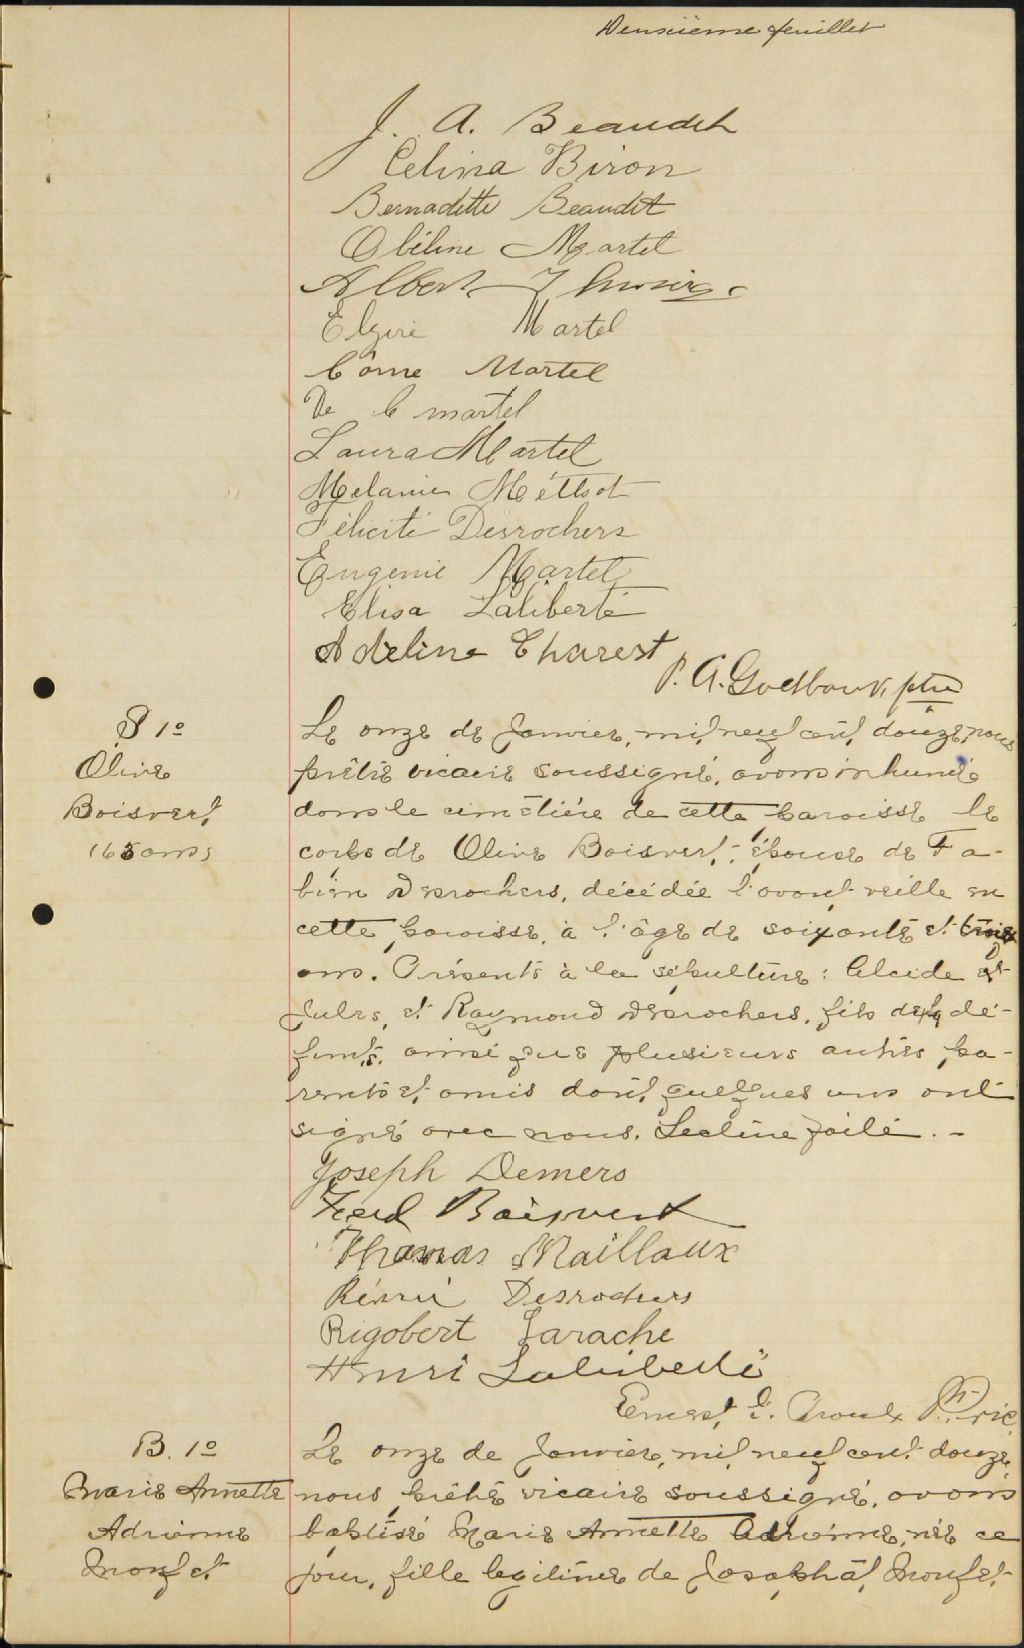 Deuxième feuillet
J. A. Beaudet
Celina Biron
Bernadette Beaudet
Obéline Martel
Albert
Elzire Martel
Côme Martel
De C martel
Laura Martel
Melanie Méthot
Félicité Desrochers
Eugenie Martel
Elisa Laliberté
Adeline Charest
P. A. Godbout, ptre
S 1º
Olive
Boisvert
63 ans
Le onze de Janvier, mil neuf cent douze, nous
prêtre vicaire soussigné, avons inhumé
dans le cimetière de cette paroisse le
corps de Olive Boisvert, épouse de Fa-
bien Desrochers, décédée l'avant veille en
cette paroisse, à l'âge de soixante et trois
ans. Présents à la sépulture: Alcide et
Jules, et Raymond Desrochers, fils de la dé-
funte, ainsi que plusieurs autres pa-
rents et amis dont quelques uns ont
signé avec nous. Lecture faite. -
Joseph Demers
Fred Boisvert
Thomas Maillaux
Rémi Desrochers
Rigobert Larache
Henri Laliberté
Ernest E. Proulx Ptre vic.
B. 1º
Marie Annette
Adrienne
Monfet
Le onze de Janvier, mil neuf cent douze,
nous prêtre vicaire soussigné, avons
baptisé Marie Annette Adrienne, née ce
jour, fille légitime de Josaphat Monfet